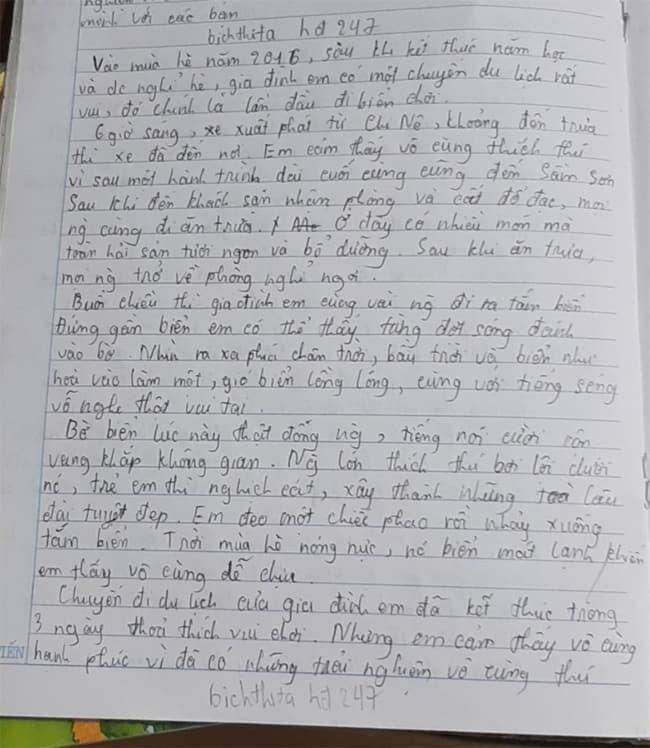 mình với các bạn
bichthita hd 247
Vào mùa hè năm 2016, sau khi kết thúc năm học
và dc nghỉ hè, gia đình em có một chuyến du lịch rất
vui, đó chính là lần đầu đi biển chơi.
6 giờ sáng, xe xuất phát từ Chi Nê, khoảng đến trưa
thì xe đã đến nơi. Em cảm thấy vô cùng thích thú
vì sau một hành trình dài cuối cùng cũng đến Sầm Sơn
Sau khi đến khách sạn nhận phòng và cất đồ đạc, mọi
ng cùng đi ăn trưa. Ở đây có nhiều món mà
toàn hải sản tươi ngon và bổ dưỡng. Sau khi ăn trưa,
mọi ng trở về phòng nghỉ ngơi.
Buổi chiều thì gia đình em cùng vài ng đi ra tắm biển
Đứng gần biển em có thể thấy từng đợt sóng đánh
vào bờ. Nhìn ra xa phía chân trời, bầu trời và biển như
hoà vào làm một, gió biển lồng lộng, cùng với tiếng sóng
vỗ nghe thật vui tai.
Bờ biển lúc này thật đông ng, tiếng nói cười rôn
vang khắp không gian. Ng lớn thích thú bơi lội dưới
nc, trẻ em thì nghịch cát, xây thành những lâu
đài tuyệt đẹp. Em đeo một chiếc phao rồi nhảy xuống
tắm biển. Trời mùa hè nóng nực, nc biển mát lạnh khiến
em thấy vô cùng dễ chịu.
Chuyến đi du lịch của gia đình em đã kết thúc trong
3 ngày thoả thích vui chơi. Nhưng em cảm thấy vô cùng
TIẾN hạnh phúc vì đã có những trải nghiệm vô cùng thú
bichthita hd 247